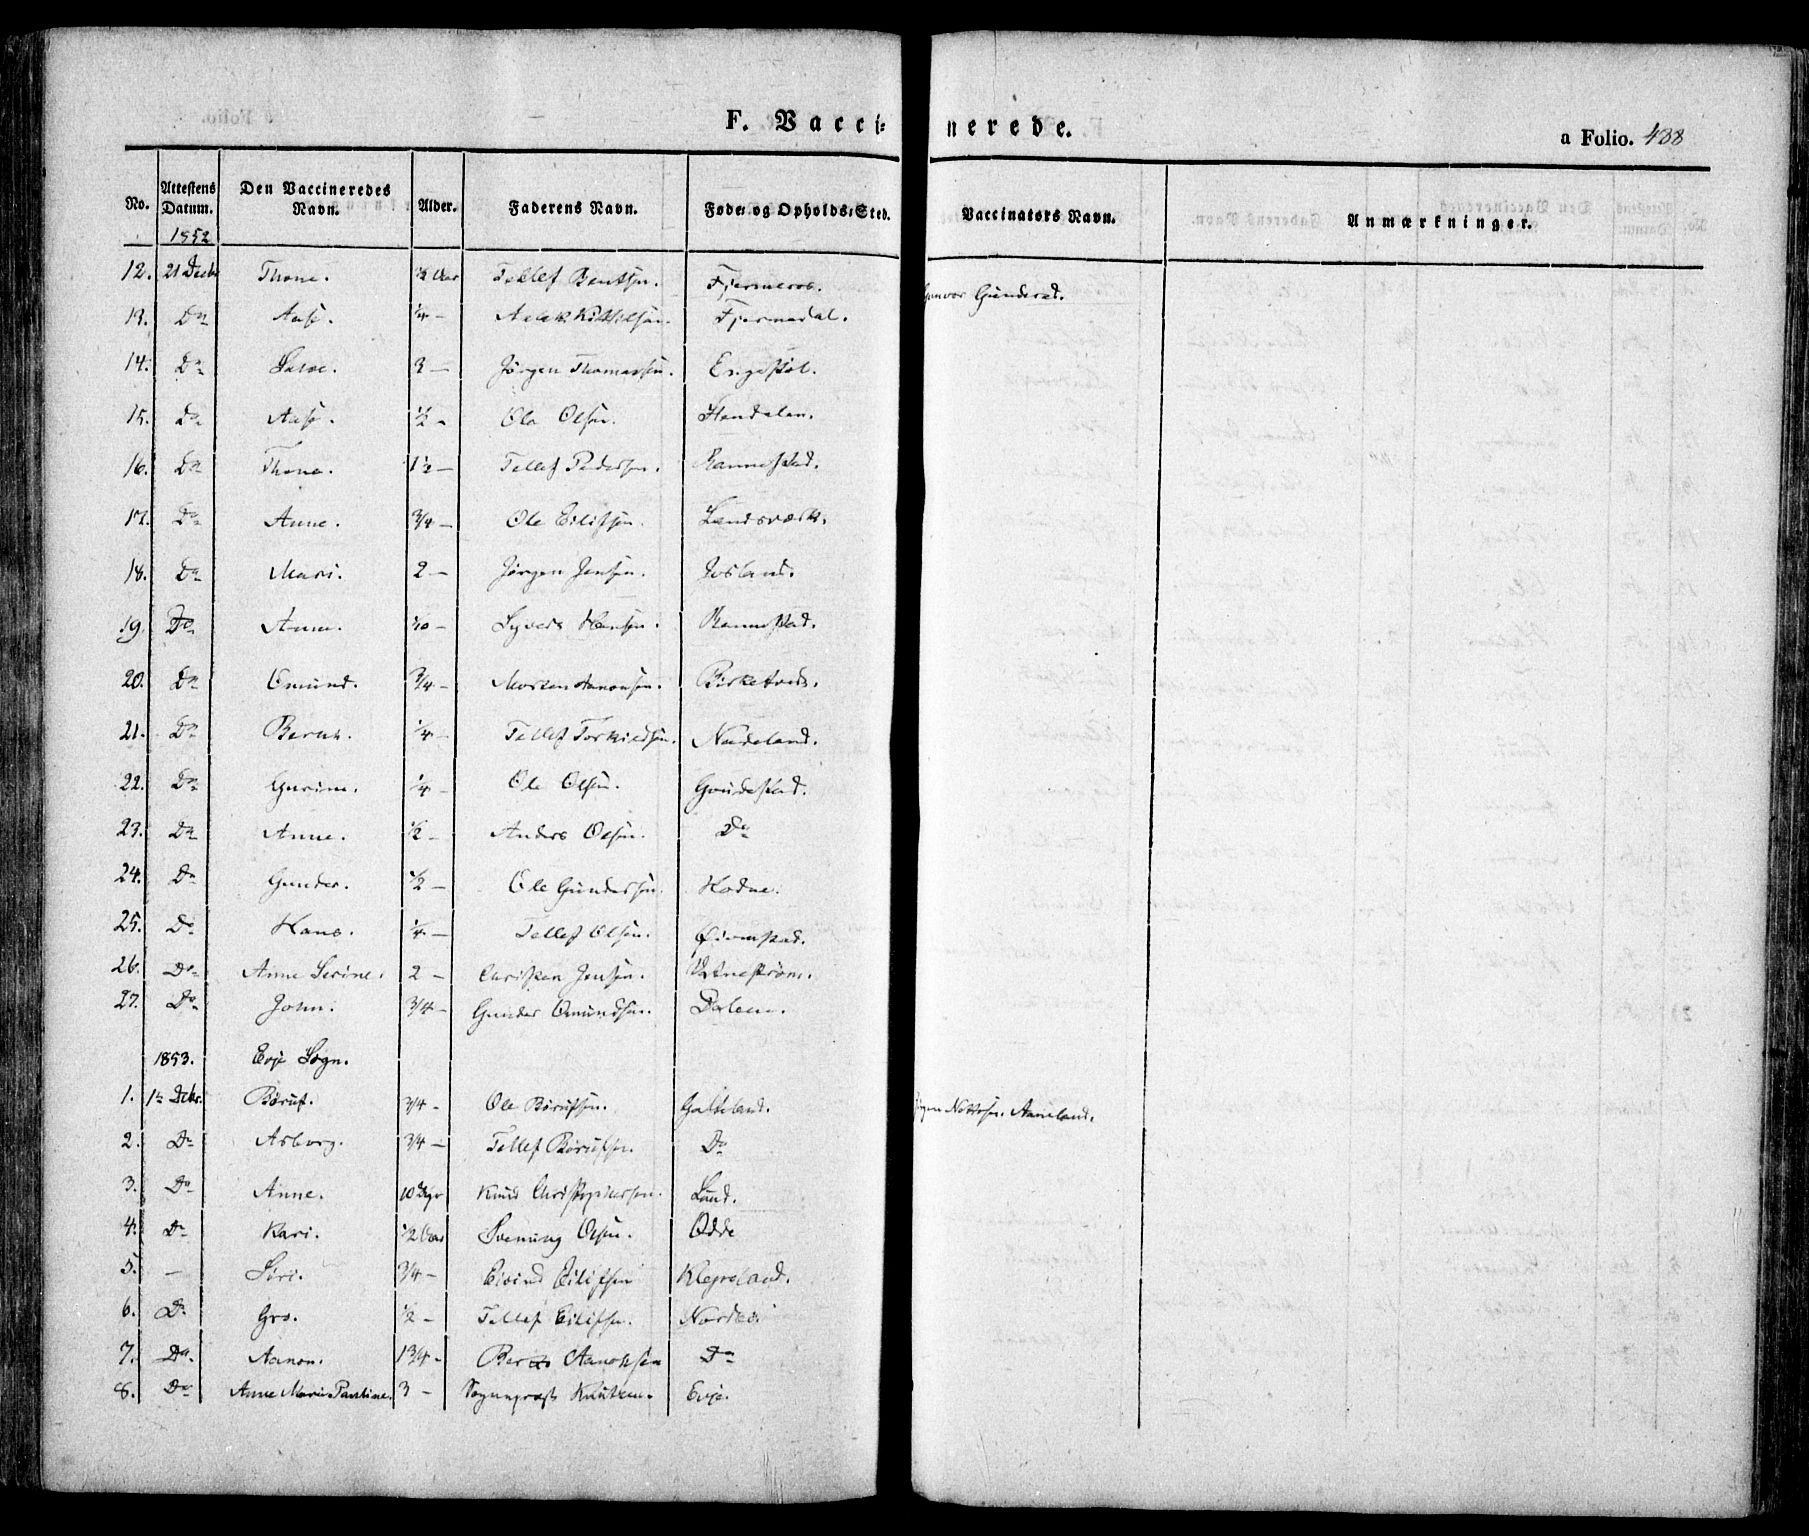 F. Vacci-nerede.
a Folio. 438
No. Attestens Datum. Den Vaccineredes Navn. Alder. Faderens Navn. Føde- og Opholds-Sted. Vaccinators Navn. Anmærkninger.
1852
12. 21 Decbr Thone. ½ Aar Tellef Bentsen. Fjermeros. Gunvor Gundersd.
13. Do Aase. ¼ – Fjermedal.
14. Do 3 – Jørgen Thomassen. Engestøl.
15. Do Aase. ½ – Ole Olsen.
16. Do Thone. 1½ – Tellef Pedersen. Rannestad.
17. Do Anne. ¾ – Ole Eilifsen. Landsværk.
18. Do Mari. 2 – Jørgen Jensen. Iveland.
19. Do Anne. Syvert Hansen. Rannestad.
20. Do Omund. ¾ – Morten Aanonsen. Birketveit.
21. Do Bernt. ¼ – Tellef Torkildsen. Nateland.
22. Do Gurine. ¼ – Ole Olsen. Goudestad.
23. Do Anne. ½ – Anders Olsen. Do
24. Do Gunder. ½ – Ole Gundersen. Hodne.
25. Do Hans. ¼ – Tellef Olsen.
26. Do Anne Serine. 2 – Christen Jensen. Vatnestrøm.
27. Do John. ¾ – Gunder Omundsen. Dalen.
1853. Evje Sogn.
1. 1ste Decbr. Børuf. ¾ – Ole Børufsen. Galteland. Jørgen Nottesen Aaneland.
2. Do Asborg. ¾ – Tellef Børufsen. Do
3. Do Anne. 10 Dage Knud Christophersen. Lund.
4. Do Kari. ½ Aar Svenung Olsen. Odde
5. – Siri. ¾ – Eivind Eilifsen Klepsland.
6. Do Gro. ½ – Tellef Eilifsen.
7. Do Aanon. 1¾ – Aanonsen Do
8. Do Anne Marie Pauline. 3 – Sognepræst Knutzen. Evje.